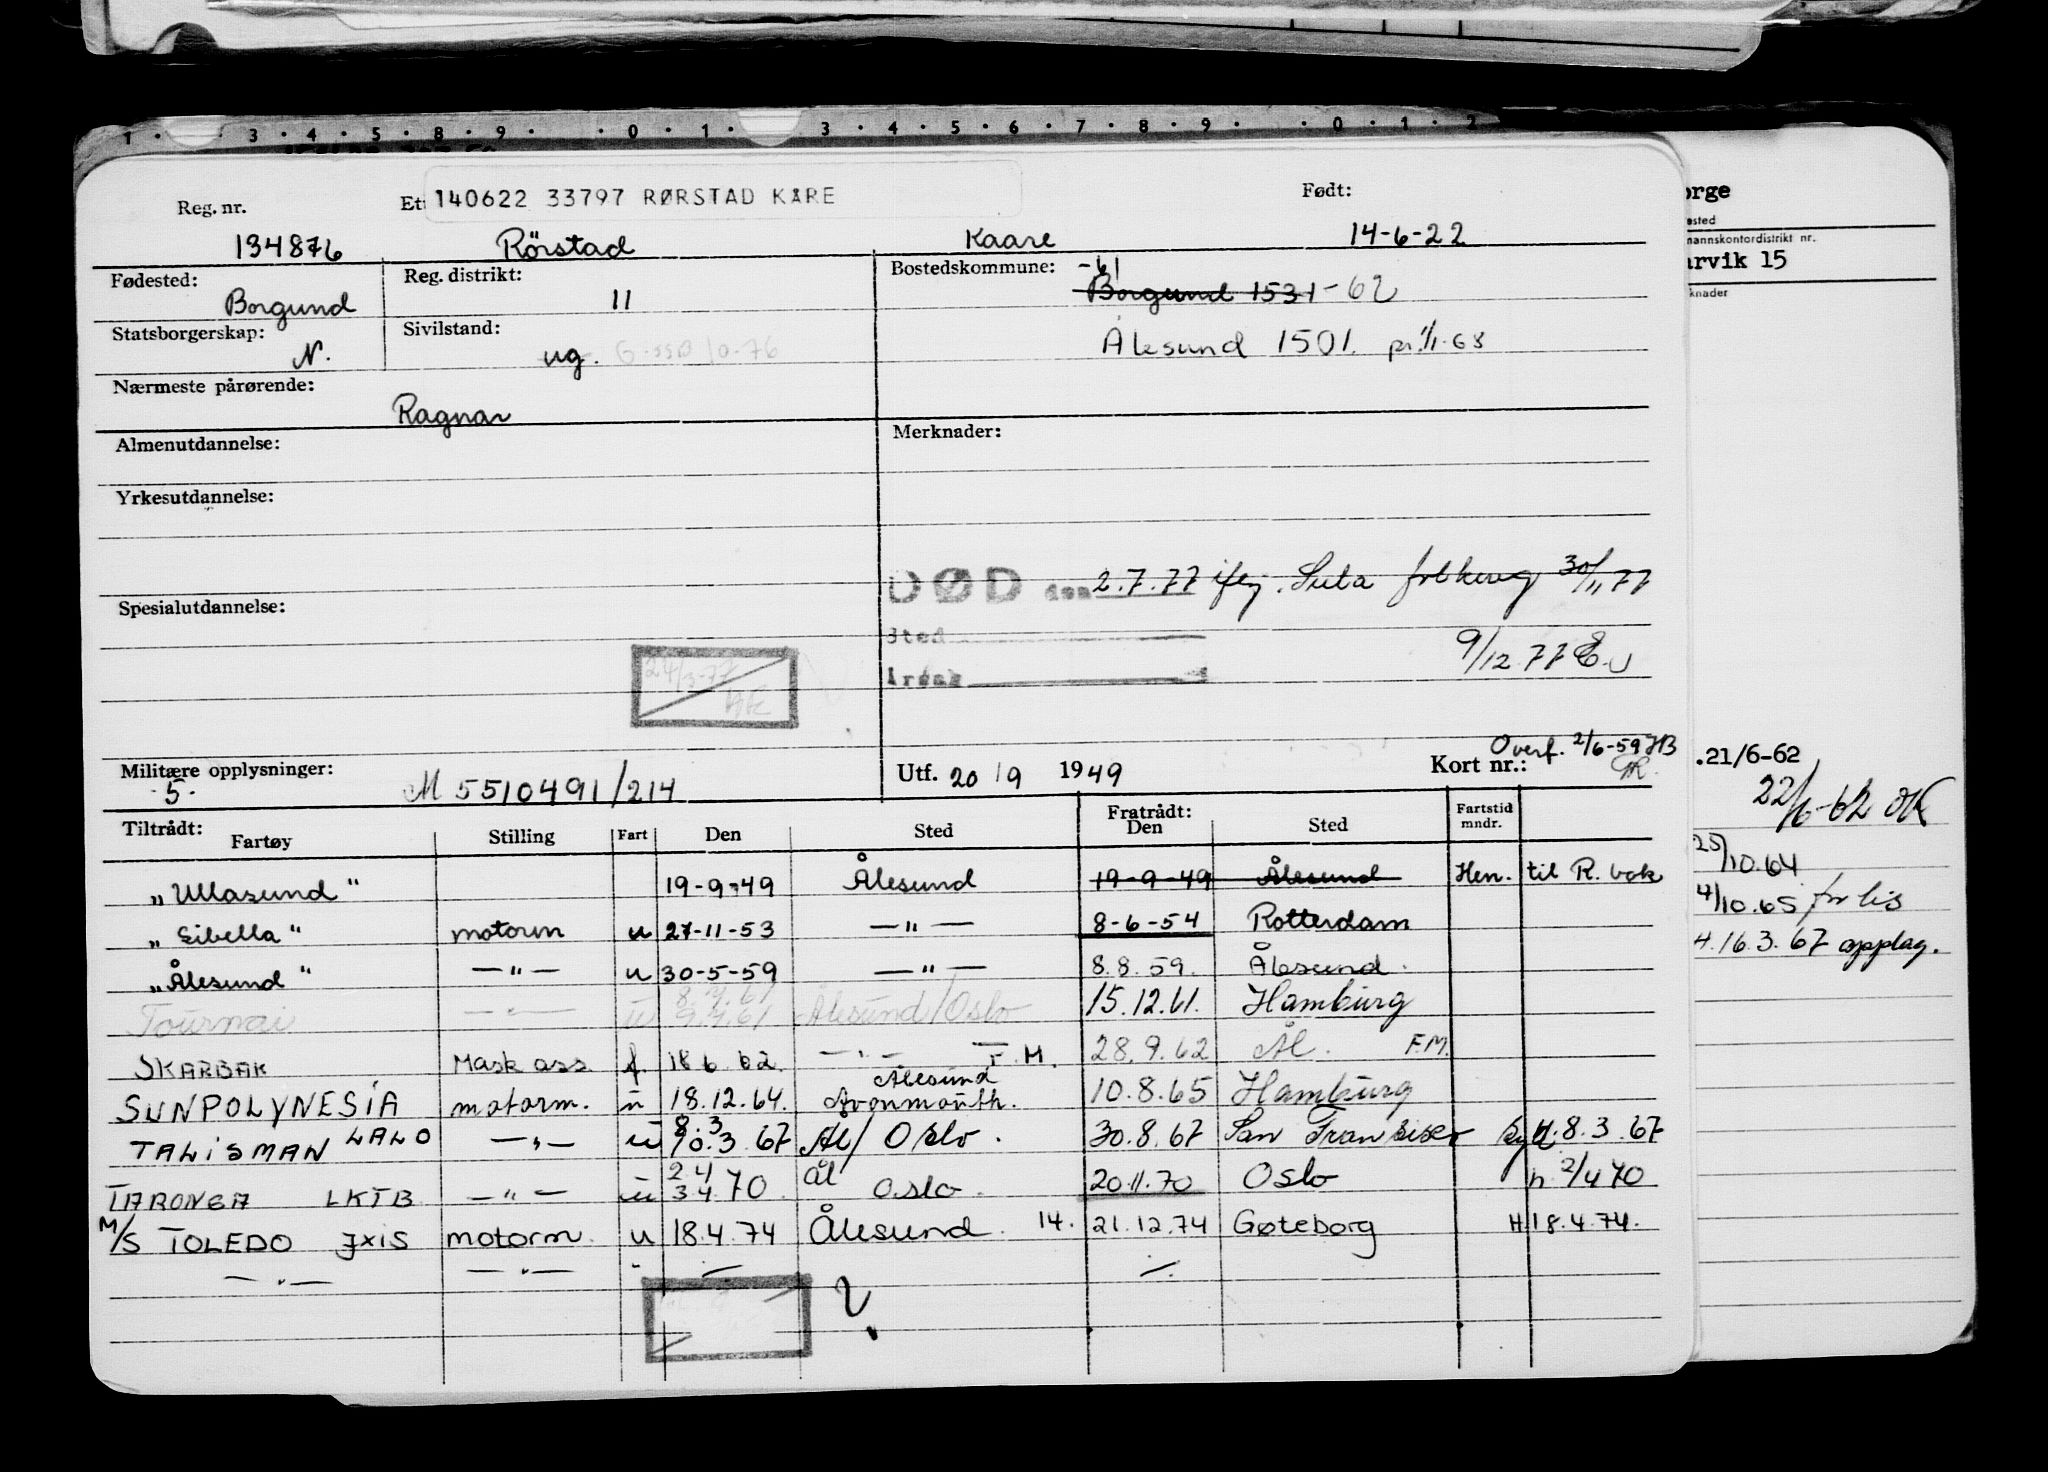 1 · 3 · 4 · 5 · 8 · 9 · · 0 · 1 · 3 · 4 · 5 · 6 · 7 · 8 · 9 · 0 · 1 · 2
Reg. nr. Et 140622 33797 RØRSTAD KÅRE Født:
134876 Rörstad Kaare 14-6-22
Fødested: Borgund Reg. distrikt: 11 Bostedskommune: -61
Borgund 1531 -62
Statsborgerskap: N. Sivilstand: ug. Ålesund 1501. pr. 1/1-68
Nærmeste pårørende: Ragnar
Almenutdannelse: Merknader:
Yrkesutdannelse:
DØD den 2.7.77 iflg. folkereg 30/11 77
Spesialutdannelse:
Sted
Årsak 9/12 77
24/3-77
Overf. 2/6-59
Militære opplysninger: 5. M 5510491/214 Utf. 20/9 1949 Kort nr.:
Tiltrådt: Fartøy Stilling Fart Den Sted Fratrådt: Den Sted Fartstid mndr.
"Ullasund" 19-9-49 Ålesund 19-9-49 Ålesund Hen. til R. bok
"Eibella" motorm u 27-11-53 —"— 8-6-54 Rotterdam
"Ålesund" —"— u 30-5-59 —"— 8.8.59. Ålesund.
Tournai —"— u 9.4.61 Ålesund/Oslo 15.12.61. Hamburg
SKARBAK Mask ass f. 18 6 62. —"— F.M. 28.9.62 Ål. F.M.
SUNPOLYNESIA motorm. u 18.12.64. Ålesund Avonmouth. 10.8.65 Hamburg
TALISMAN LALO —"— u 8.3 10.3.67 Ål/Oslo. 30.8.67 San Fransisco 8.3.67
TARONGA LKTB —"— u 2 4 3 4 70 Ål Oslo. 20.11.70 Oslo h 2/4 70
M/S TOLEDO JXIS motorm. u 18.4.74 Ålesund. 14. 21.12.74 Gøteborg H 18.4.74.
—"— —"—
orge
sted
mannskontordistrikt nr.
arvik 15
knader
.21/6-62
22/6-62
25/10.64
4/10.65 forlis
16.3.67 opplag.